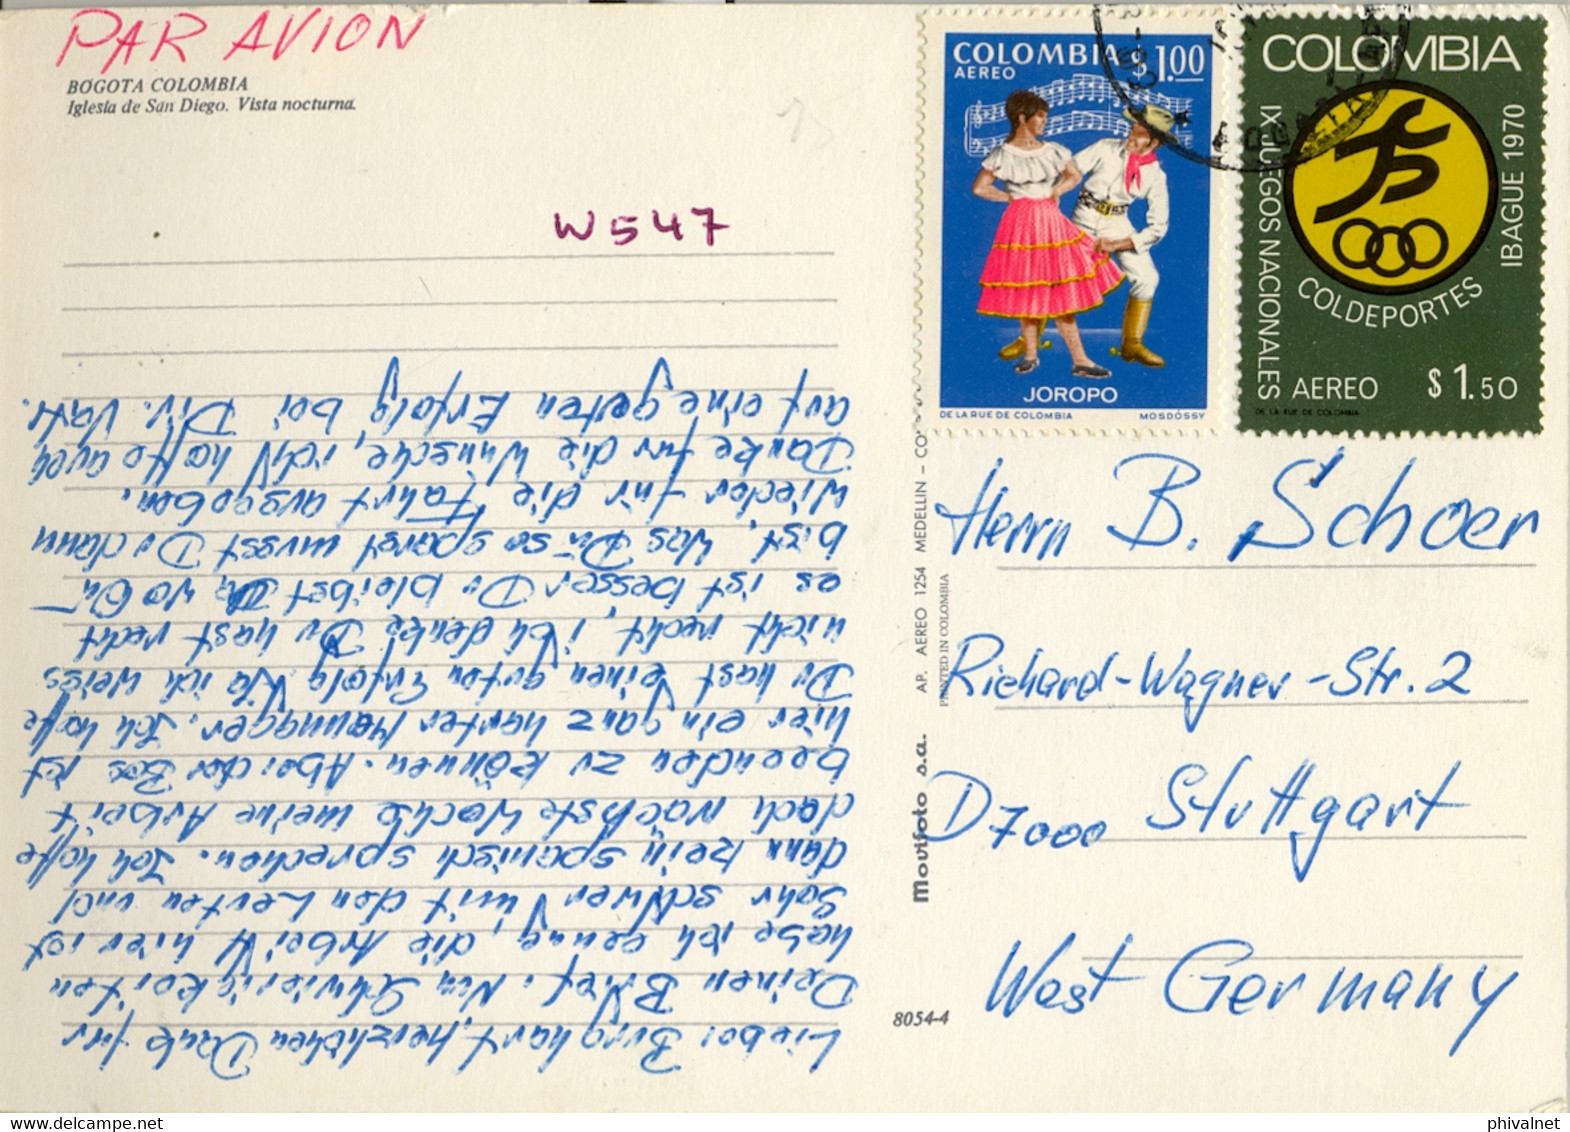 PAR AVION
BOGOTA COLOMBIA
Iglesia de San Diego. Vista nocturna.
W547
COLOMBIA
AEREO
$1.00
JOROPO
DE LA RUE DE COLOMBIA
MOSDÓSSY
COLOMBIA
IX JUEGOS NACIONALES
IBAGUE 1970
COLDEPORTES
AEREO $1.50
DE LA RUE DE COLOMBIA
Lieber Burghart, herzlichen Dank für
Deinen Brief. Nun Schwierigkeiten
habe ich genug, die Arbeit hier ist
sehr schwer mit den Leuten und
dann kein spanisch sprechen. Ich hoffe
doch nächste Woche meine Arbeit
beenden zu können. Aber der Bos ist
hier ein ganz harter Manager. Ich hoffe
Du hast einen guten Erfolg. Wo ich weiss
nicht recht, ich denke Du hast recht
es ist besser Du bleibst wo Du
bist. Was Du so sparst musst Du dann
wieder für die Fahrt ausgeben.
Danke für die Wünsche, ich hoffe auch
auf eine guten Erfolg bei Div. Vast.
Movifoto s.a. AP. AEREO 1254 MEDELLIN - CO
PRINTED IN COLOMBIA
Herrn B. Schoer
Richard-Wagner-Str. 2
D 7000 Stuttgart
West Germany
8054-4
phivalnet